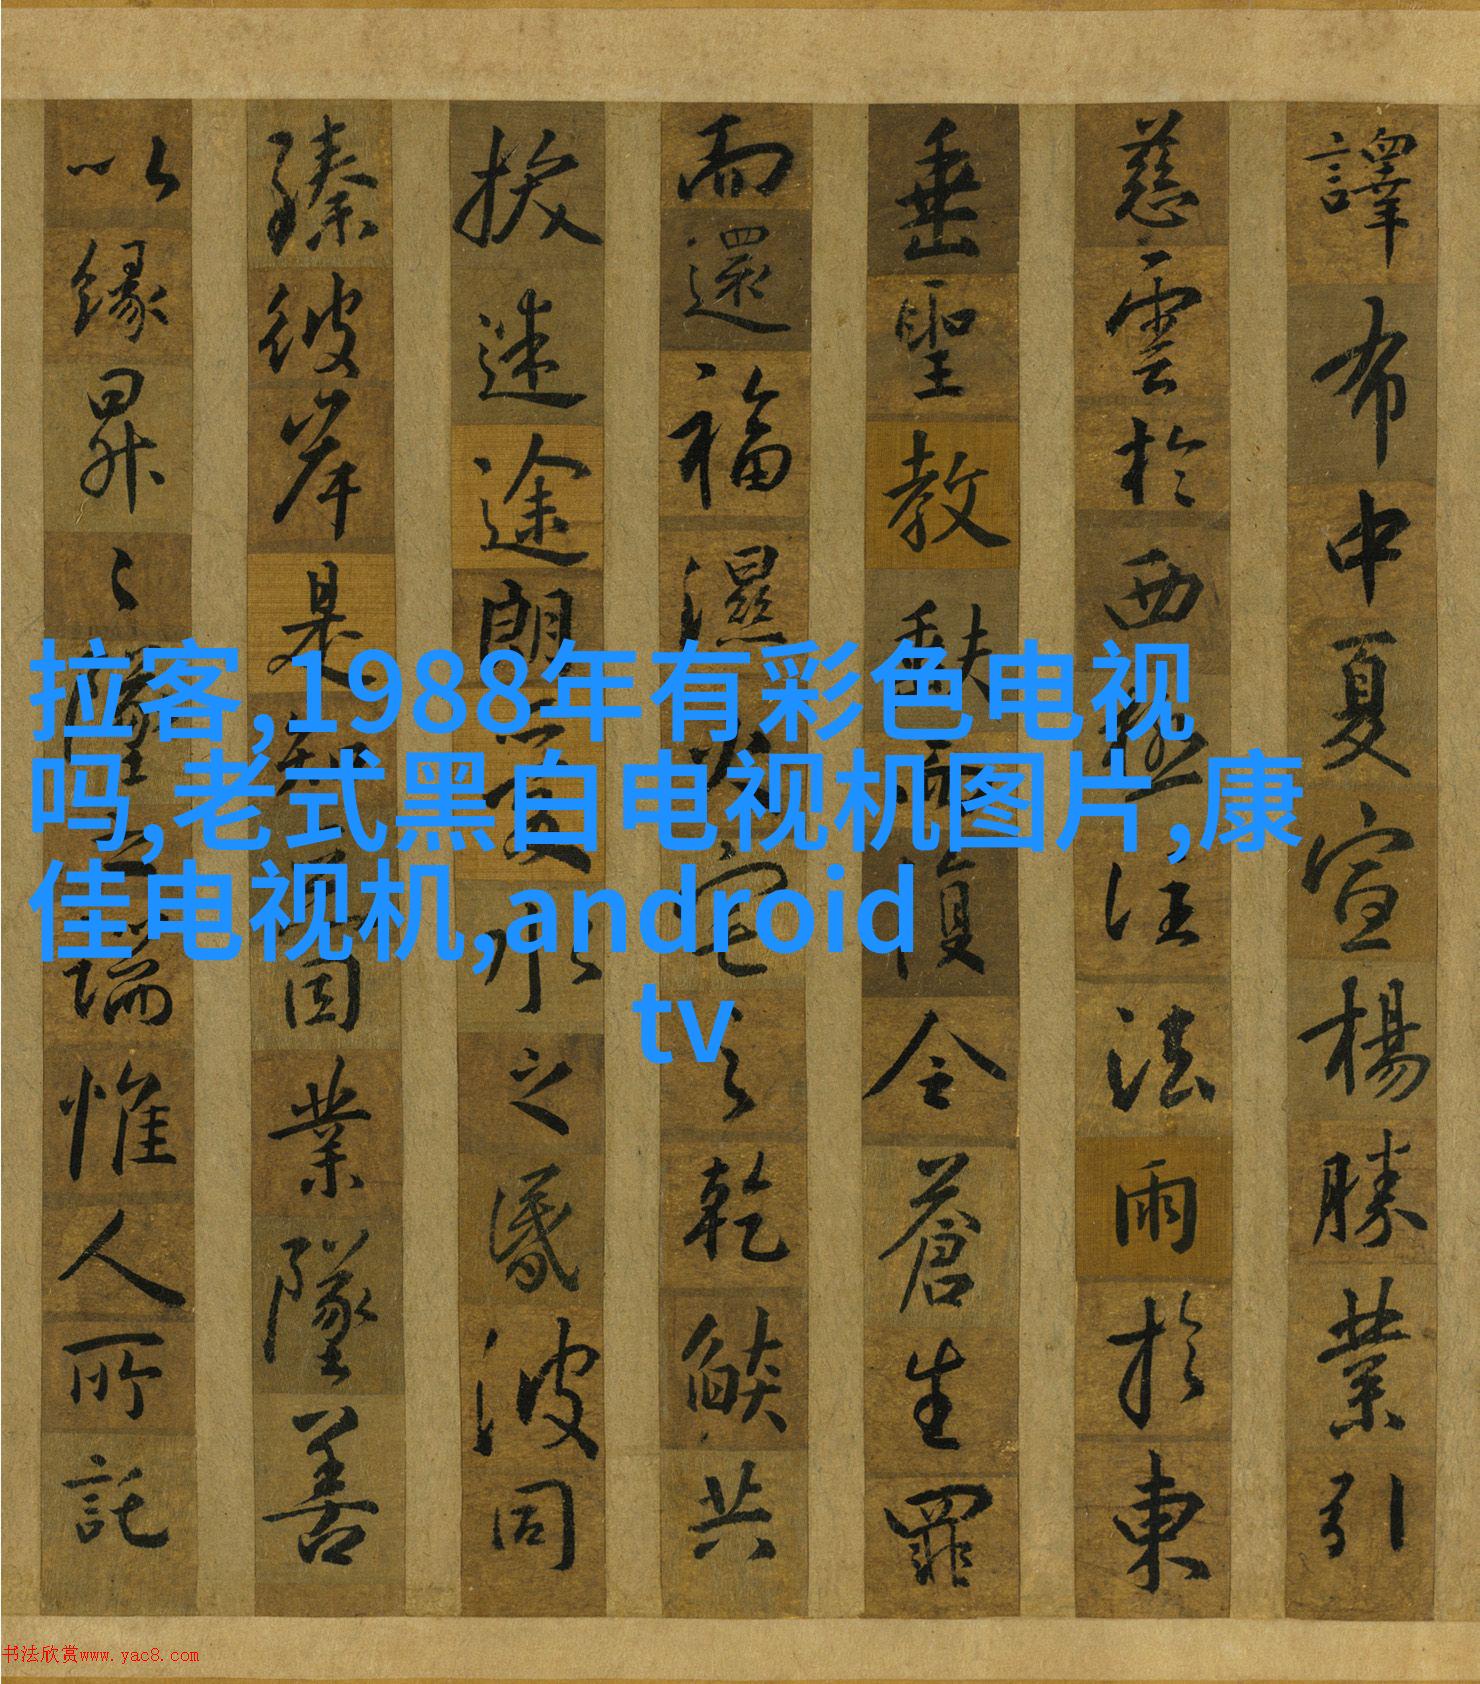 譯布中夏宣楊勝業引
慈雲於西極注法雨於東
垂聖教缺而復全蒼生罪
而還福濕火宅之乾燄共
拔迷途朗愛水之昏波同
臻彼岸是知惡因業墜善
以緣昇〻墜之端惟人所託
拉客,1988年有彩色电视
吗,老式黑白电视机图片,康
佳电视机,android
tv
书法欣赏www.yac8.com